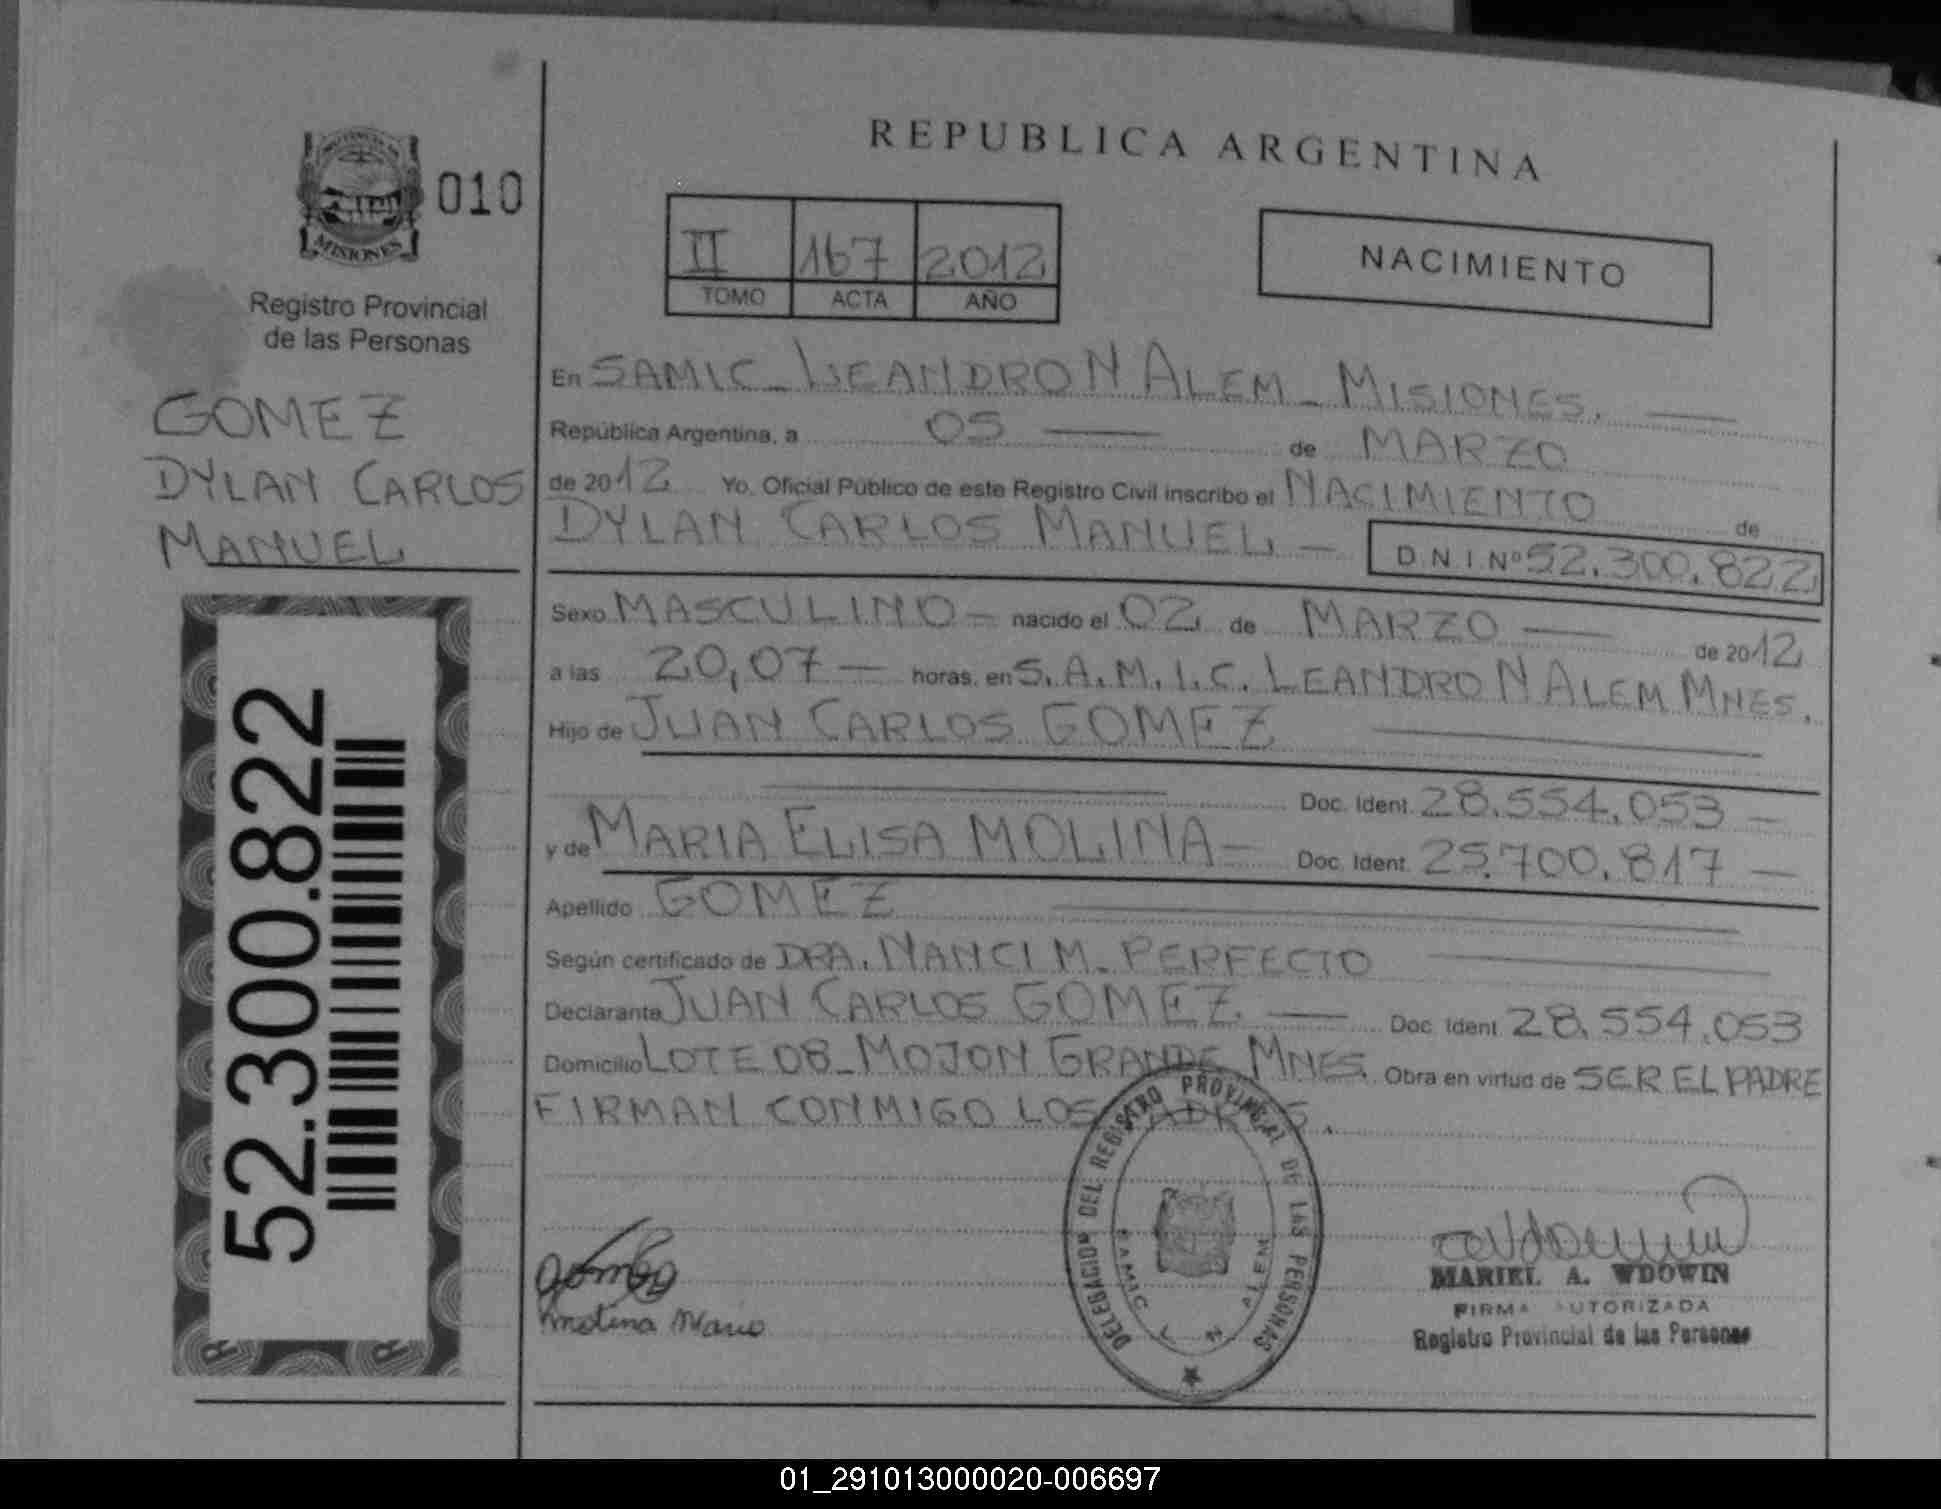 REPUBLICA ARGENTINA
MISIONES
010
Registro Provincial
de las Personas
GOMEZ
DYLAN CARLOS
MANUEL
52.300.822
II 167 2012
TOMO ACTA AÑO
NACIMIENTO
En SAMIC - LEANDRO N ALEM - MISIONES.
República Argentina, a 05 de MARZO
de 2012 Yo, Oficial Público de este Registro Civil inscribo el NACIMIENTO de
DYLAN CARLOS MANUEL - D.N.I. Nº 52.300.822
Sexo MASCULINO - nacido el 02 de MARZO de 2012
a las 20,07 - horas, en S.A.M.I.C. LEANDRO N ALEM MNES.
Hijo de JUAN CARLOS GOMEZ
Doc. Ident. 28.554.053 -
y de MARIA ELISA MOLINA - Doc. Ident. 25.700.817 -
Apellido GOMEZ
Según certificado de DRA. NANCI M. PERFECTO
Declarante JUAN CARLOS GOMEZ. Doc. Ident. 28.554.053
Domicilio LOTE 08 - MOJON GRANDE MNES. Obra en virtud de SER EL PADRE
FIRMAN CONMIGO LOS PADRES.
DELEGACION DEL REGISTRO PROVINCIAL DE LAS PERSONAS
SAMIC L. N. ALEM
Gomez
Molina Maria
MARIEL A. WDOWIN
FIRMA AUTORIZADA
Registro Provincial de las Personas
01_291013000020-006697